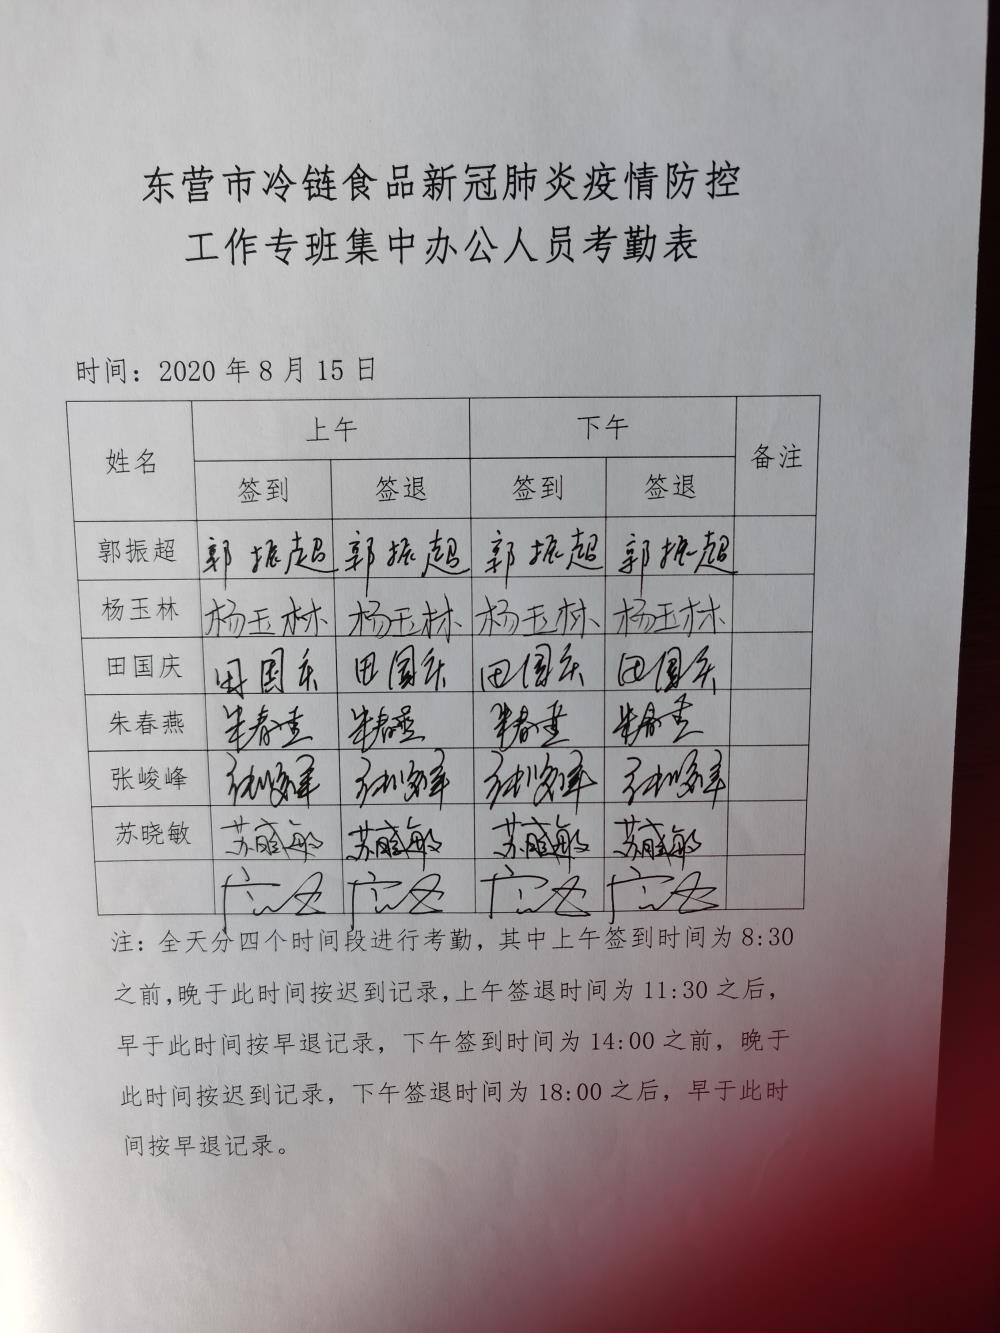 东营市冷链食品新冠肺炎疫情防控
工作专班集中办公人员考勤表
时间：2020 年 8 月 15 日
姓名 上午 下午 备注
签到 签退 签到 签退
郭振超 郭振超 郭振超 郭振超 郭振超
杨玉林 杨玉林 杨玉林 杨玉林 杨玉林
田国庆 田国庆 田国庆 田国庆 田国庆
朱春燕 朱春燕 朱春燕 朱春燕 朱春燕
张峻峰 张峻峰 张峻峰 张峻峰 张峻峰
苏晓敏 苏晓敏 苏晓敏 苏晓敏 苏晓敏
注：全天分四个时间段进行考勤，其中上午签到时间为 8:30
之前，晚于此时间按迟到记录，上午签退时间为 11:30 之后，
早于此时间按早退记录，下午签到时间为 14:00 之前，晚于
此时间按迟到记录，下午签退时间为 18:00 之后，早于此时
间按早退记录。